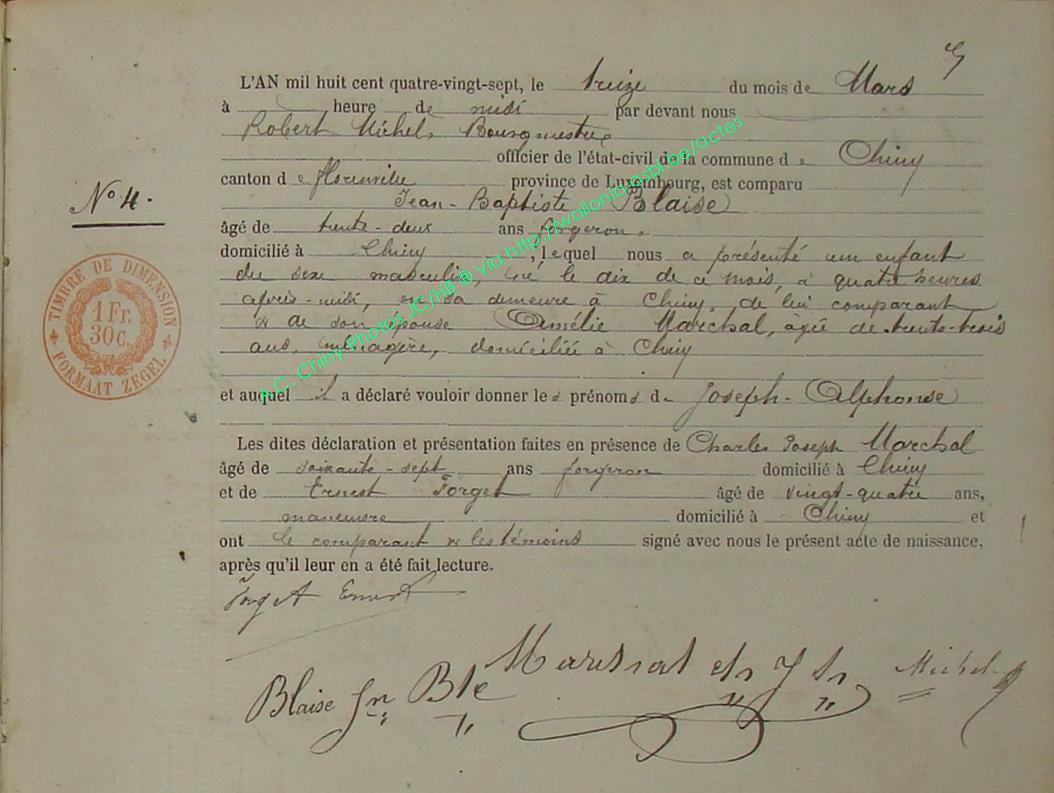 L'AN mil huit cent quatre-vingt-sept, le treize du mois de Mars
à heure de midi par devant nous
Robert Michel, Bourgmestre
officier de l'état-civil de la commune de Chiny
canton de florenville province de Luxembourg, est comparu
Jean-Baptiste Blaise
N° 4.
âgé de trente-deux ans forgeron,
domicilié à Chiny, lequel nous a présenté un enfant
du sexe masculin, né le dix de ce mois, à quatre heures
après-midi, en sa demeure à Chiny, de lui comparant
& de son épouse Amélie Maréchal, âgée de trente-trois
ans, ménagère, domiciliée à Chiny
TIMBRE DE DIMENSION
1 Fr. 30 c.
FORMAAT ZEGEL
et auquel il a déclaré vouloir donner les prénoms de Joseph-Alphonse
Les dites déclaration et présentation faites en présence de Charles Joseph Marechal
âgé de soixante-sept ans forgeron domicilié à Chiny
et de Ernest Forget âgé de vingt-quatre ans,
domicilié à Chiny et
ont le comparant & les témoins signé avec nous le présent acte de naissance,
après qu'il leur en a été fait lecture.
Forget Ernest
Blaise Jn Bte
Michel
A.C. Chiny Photos JC/HB ® via http://walloniaasbl.be/actes